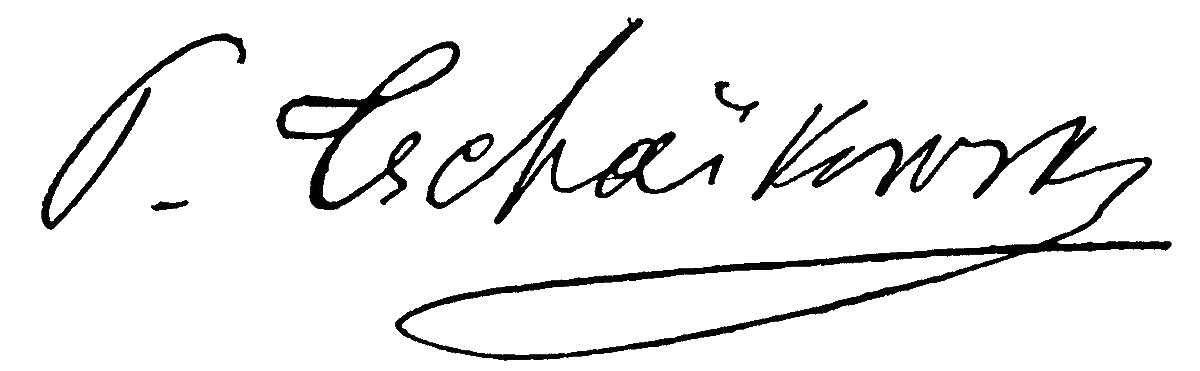 P. Tschaïkovsky